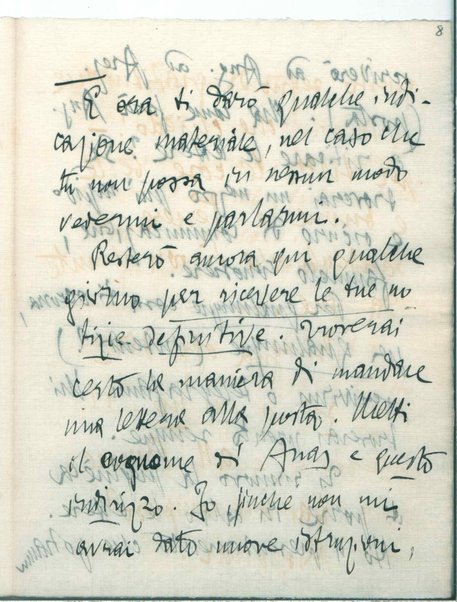 8
E ora ti darò qualche indi-
cazione materiale, nel caso che
tu non possa in nessun modo
vedermi e parlarmi.
Resterò ancora qui qualche
giorno per ricevere le tue no
tizie definitive. Troverai
certo la maniera di mandare
una lettera alla posta. Metti
il cognome di e questo
indirizzo. Io, finche non mi
avrai dato nuove istruzioni,